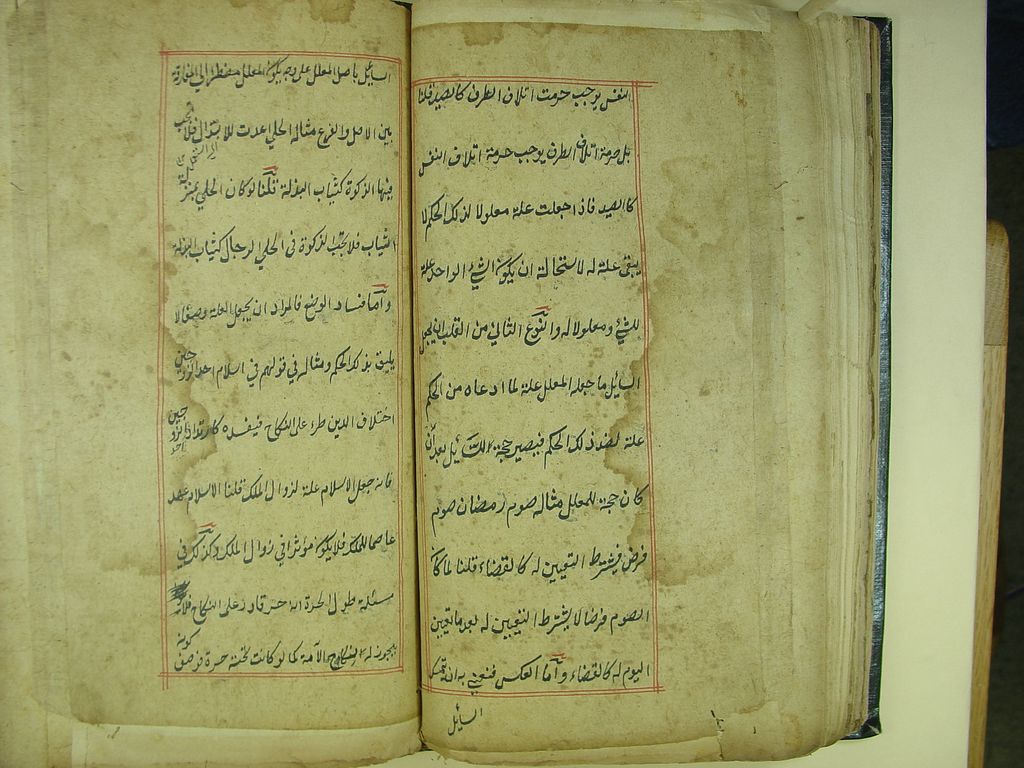 النفس يوجب حرمت اتلاف الطرف كالصيد قلنا
بل حرمة اتلاف الطرف يوجب حرمة اتلاف النفس
كالصيد فاذا جعلت علته معلولا لذلك الحكم لا
يبقى علة له لاستحالة ان يكون الشئ الواحد علة
للشئ ومعلولا له والنوع الثاني من القلب ان يجعل
السايل ما جعله المعلل علة لما ادعاه من الحكم
علة لضد ذلك الحكم فيصير حجة للسايل بعد ان
كان حجة للمعلل مثاله صوم رمضان صوم
فرض فيشترط التعيين له كالقضاء قلنا لما كان
الصوم فرضا لا يشترط التعيين له بعد ما تعين
اليوم له كالقضاء واما العكس فنعني به ان يتمسك
السايل
السايل باصل المعلل على وجه يكون المعلل مضطرا الى المفارقة
بين الاصل والفرع مثاله الحلي اعدت للابتذال فلا يجب
فيها الزكوة كثياب البذلة قلنا لو كان الحلي بمنزلة
الثياب فلا تجب الزكوة في الحلي الرجال كثياب البذلة
واما فساد الوضع فالمراد ان يجعل العلة وصفا لا
يليق بذلك الحكم ومثاله في قولهم في اسلام احد الزوجين
اختلاف الدين طرء على النكاح فيفسده كارتداد احد الزوجين
فانه جعل الاسلام علة لزوال الملك قلنا الاسلام عهد
عاصما للملك فلا يكون مؤثرا في زوال الملك وكذلك في
مسئلة طول الحرة انه حر قادر على النكاح فلا
يجوز له الامة كما لو كانت تحته حرة فوصف كونه